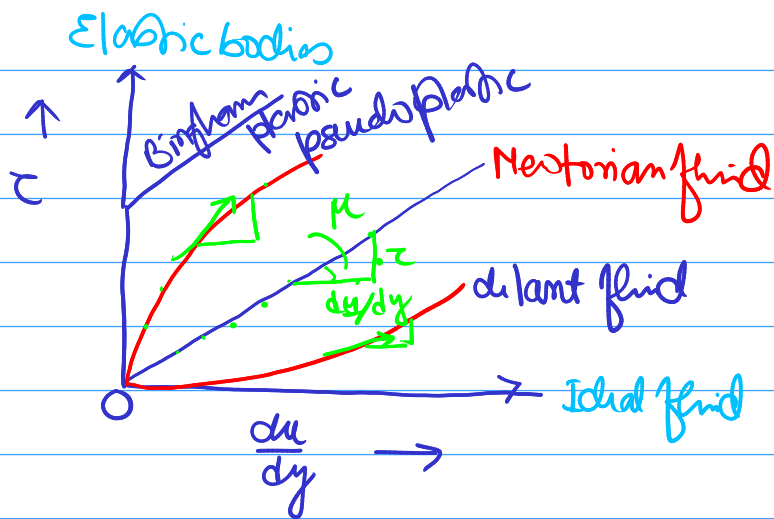 Elastic bodies
τ
Bingham plastic
pseudoplastic
Newtonian fluid
μ
τ
du/dy
dilant fluid
O
Ideal fluid
du
dy